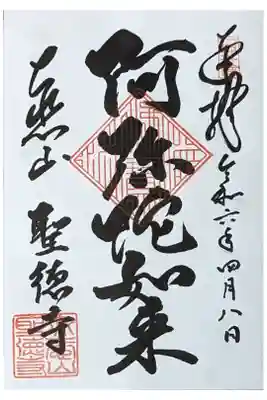 奉拝
令和六年四月八日
阿弥陀如来
聖徳寺